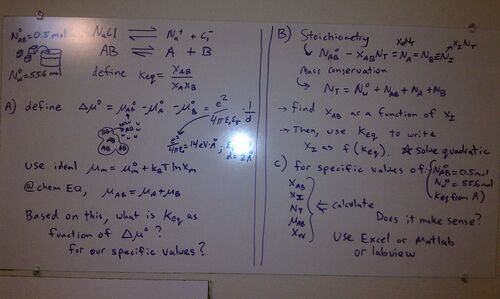 N°AB = 0.5 mol
N°W = 55.6 mol
NaCl ⇌ Na⁺ + Cl⁻
AB ⇌ A + B
define Keq = XAB / XAXB
A) define Δμ° = μ°AB - μ°A - μ°B = e² / 4πε₀εr · 1/d
AB AB AB
e²/4πε = 14eV·Å,
d = 2Å
use ideal μm = μ°m + kBT ln Xm
@ chem EQ, μAB = μA + μB
Based on this, what is Keq as
function of Δμ°?
for our specific values?
B) Stoichiometry
N°AB - XABNT = NA = NB = NI
XANT
XINT
Mass conservation
NT = N°W + NAB + NA + NB
→ find XAB as a function of XI
→ Then, use Keq to write
XI = f(Keq). ☆ Solve quadratic
C) for specific values of { N°AB = 0.5 mol
N°W = 55.6 mol
Keq from A)
XAB
XI
NT
μAB
XW
← calculate
Does it make sense?
Use Excel or Matlab
or labview